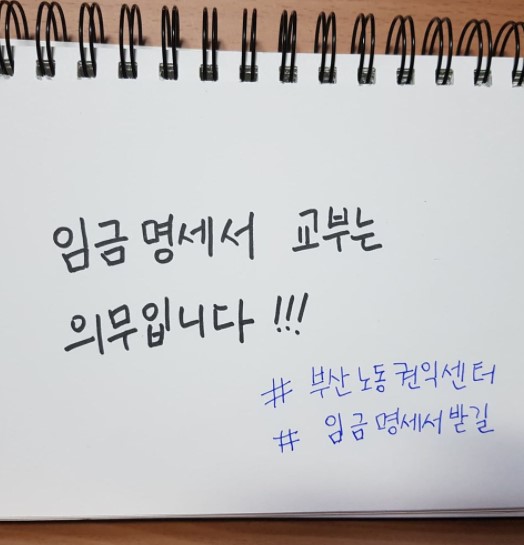 임금 명세서 교부는
의무입니다 !!!
# 부산노동권익센터
# 임금명세서받길